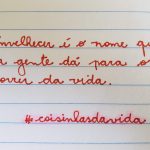 nvelhecer é o nome qu
a gente dá para o
orrer da vida.
#coisinhasdavida